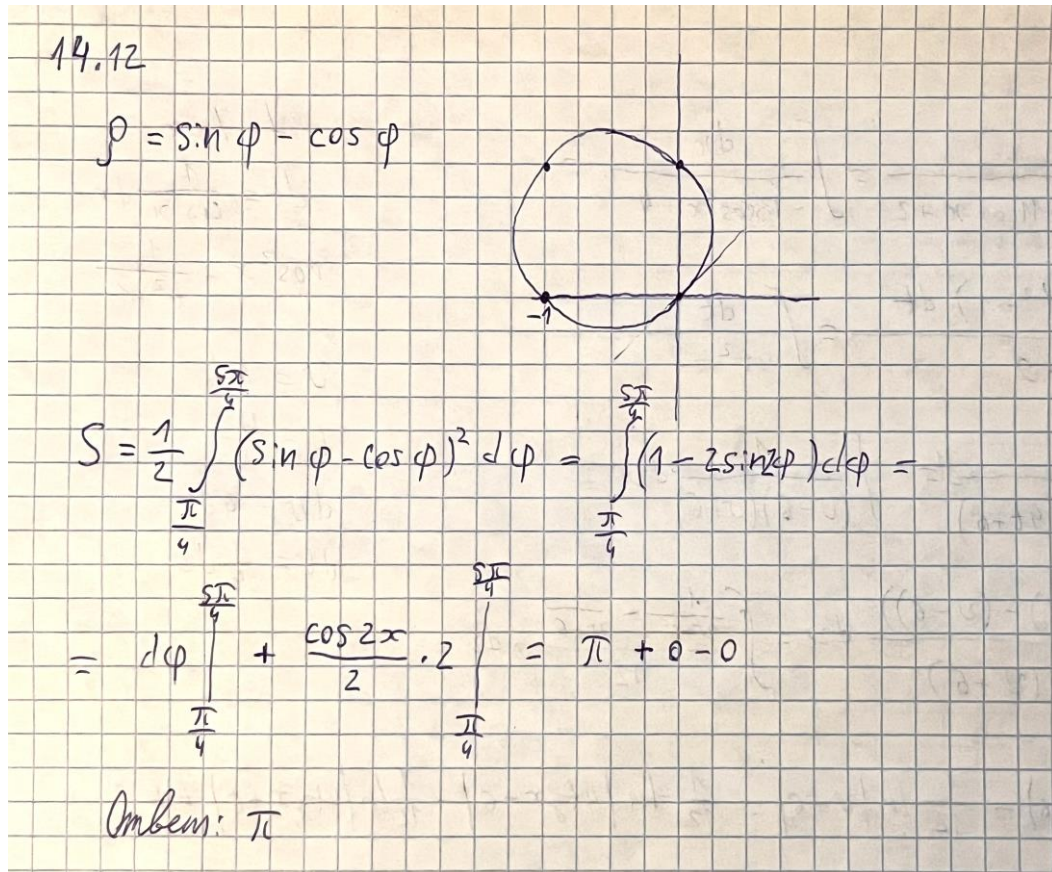 14.12
ρ = sin φ - cos φ
-1
S = 1/2 ∫_{π/4}^{5π/4} (sin φ - cos φ)² dφ = ∫_{π/4}^{5π/4} (1 - 2sin2φ) dφ =
= dφ |_{π/4}^{5π/4} + cos 2x/2 · 2 |_{π/4}^{5π/4} = π + 0 - 0
Ответ: π